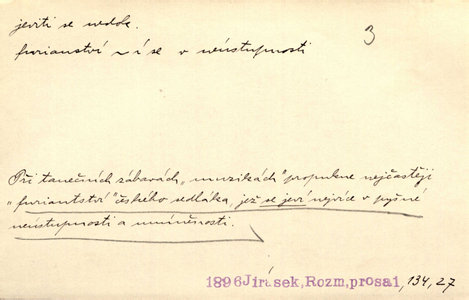 jeviti se nedok.
furianství ~ í se v neústupnosti
3
Při tanečních zábavách „muzikách" propukne nejčastěji
„furiantství" českého sedláka, jež se jeví nejvíce v pyšné
neústupnosti a umíněnosti.
1896 Jirásek, Rozm, prosa 1, 134, 27